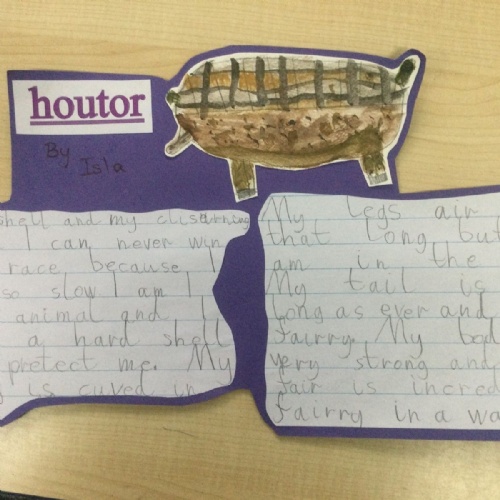 houtor
By
Isla
shell and my clistering
I can never win
race because I
so slow I am
animal and I
a hard shell
protect me. My
is curved in
My legs air
that long but
am in the
My tail is
long as ever and
fairry. My bod
very strong and
fair is incred
fairry in a wa